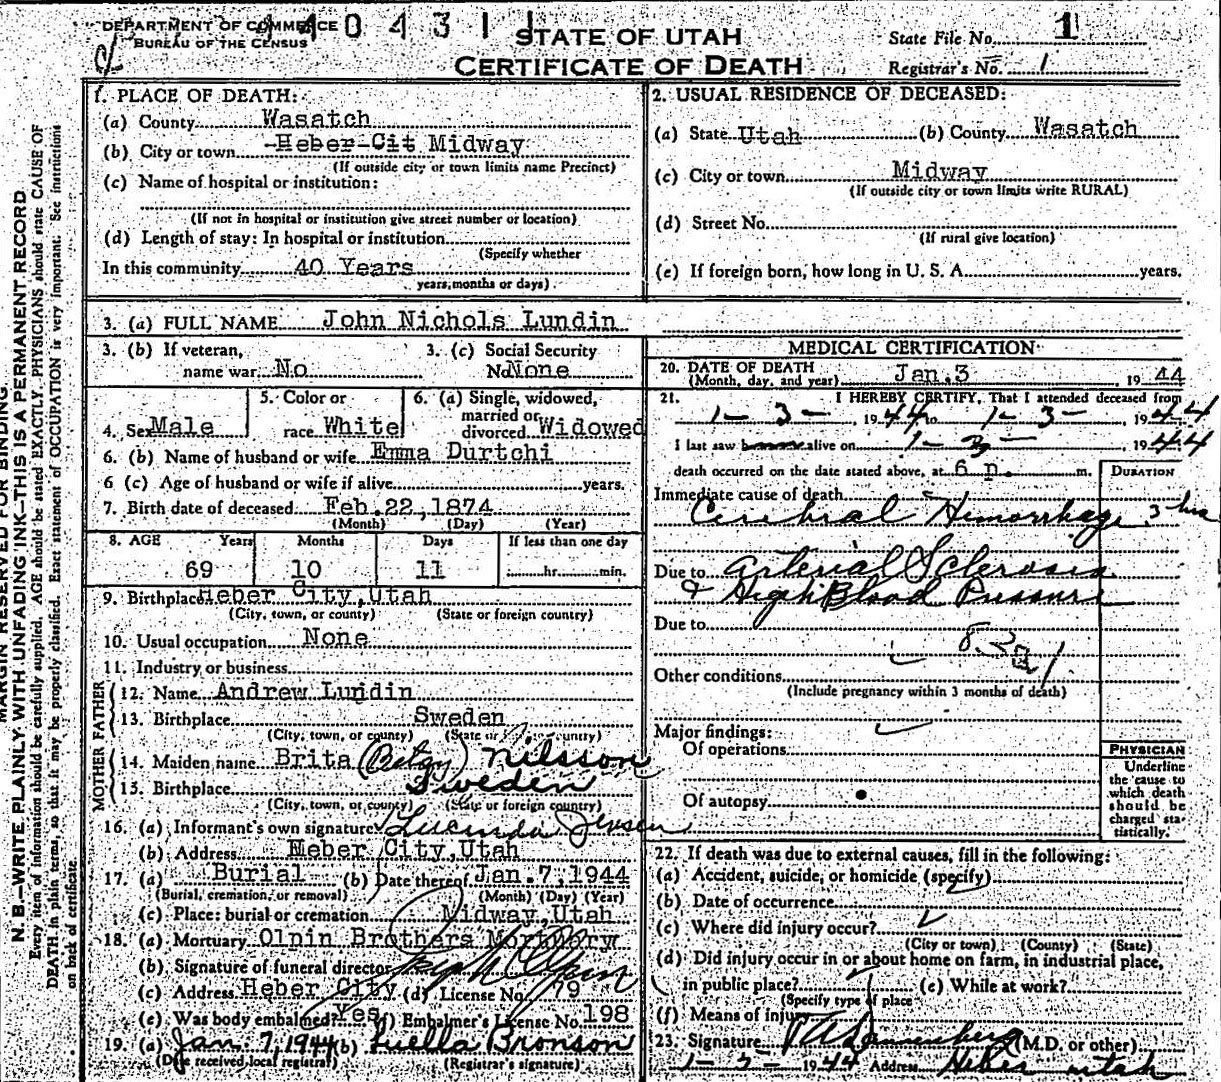 DEPARTMENT OF COMMERCE
BUREAU OF THE CENSUS
STATE OF UTAH
CERTIFICATE OF DEATH
State File No. 1
Registrar's No. 1
MARGIN RESERVED FOR BINDING
N. B.—WRITE PLAINLY, WITH UNFADING INK—THIS IS A PERMANENT RECORD
Every item of information should be carefully supplied. AGE should be stated EXACTLY. PHYSICIANS should state CAUSE OF
DEATH in plain terms, so that it may be properly classified. Exact statement of OCCUPATION is very important. See instructions
on back of certificate.
1. PLACE OF DEATH:
(a) County Wasatch
(b) City or town Heber Cit Midway
(If outside city or town limits name Precinct)
(c) Name of hospital or institution:
(If not in hospital or institution give street number or location)
(d) Length of stay: In hospital or institution
(Specify whether
In this community 40 Years
years, months or days)
2. USUAL RESIDENCE OF DECEASED:
(a) State Utah (b) County Wasatch
(c) City or town Midway
(If outside city or town limits write RURAL)
(d) Street No.
(If rural give location)
(e) If foreign born, how long in U. S. A. years.
3. (a) FULL NAME John Nichols Lundin
3. (b) If veteran, name war No
3. (c) Social Security No. None
4. Sex Male
5. Color or race White
6. (a) Single, widowed, married or divorced Widowed
6. (b) Name of husband or wife Emma Durtchi
6 (c) Age of husband or wife if alive years.
7. Birth date of deceased Feb. 22, 1874
(Month) (Day) (Year)
8. AGE Years Months Days If less than one day
69 10 11 hr. min.
9. Birthplace Heber City, Utah
(City, town, or county) (State or foreign country)
10. Usual occupation None
11. Industry or business
FATHER
12. Name Andrew Lundin
13. Birthplace Sweden
(City, town, or county) (State or country)
MOTHER
14. Maiden name Brita (Betsy) Nilsson
15. Birthplace Sweden
(City, town, or county) (State or foreign country)
16. (a) Informant's own signature Lucinda Jensen
(b) Address Heber City, Utah
17. (a) Burial (b) Date thereof Jan. 7, 1944
(Burial, cremation, or removal) (Month) (Day) (Year)
(c) Place: burial or cremation Midway, Utah
18. (a) Mortuary Olpin Brothers Mortuary
(b) Signature of funeral director
(c) Address Heber City (d) License No. 79
(e) Was body embalmed? Yes (f) Embalmer's License No. 198
19. (a) Jan. 7, 1944 (b) Luella Bronson
(Date received local registrar) (Registrar's signature)
MEDICAL CERTIFICATION
20. DATE OF DEATH
(Month, day, and year) Jan. 3, 1944
21. I HEREBY CERTIFY, That I attended deceased from
1-3-, 1944 to 1-3-, 1944
I last saw alive on 1-3- 1944
death occurred on the date stated above, at 6 p. m.
DURATION
Immediate cause of death
Cerebral Hemorrhage 3 hrs
Due to Arterial Sclerosis
& High Blood Pressure
Due to
Other conditions
(Include pregnancy within 3 months of death)
Major findings:
Of operations
Of autopsy
PHYSICIAN
Underline
the cause to
which death
should be
charged sta-
tistically.
22. If death was due to external causes, fill in the following:
(a) Accident, suicide, or homicide (specify)
(b) Date of occurrence
(c) Where did injury occur?
(City or town) (County) (State)
(d) Did injury occur in or about home on farm, in industrial place,
in public place? (e) While at work?
(Specify type of place
(f) Means of injury
23. Signature (M.D. or other)
1-5-1944 Address Heber Utah